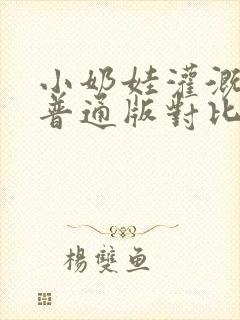 小奶娃灌溉
普通版對比
楊雙魚